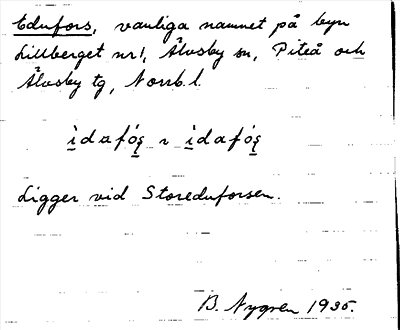 Edufors, vanliga namnet på byn
Lillberget nr 1, Älvsby sn, Piteå och
Älvsby tg, Norrb. l.
ìdafóş ~ ìdafóş
Ligger vid Storeduforsen.
B. Nygren 1935.